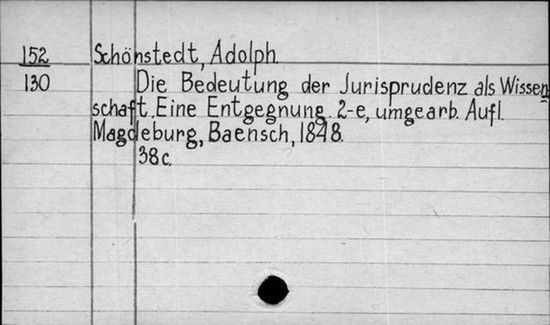 152 Schönstedt, Adolph.
130 Die Bedeutung der Jurisprudenz als Wissen
schaft. Eine Entgegnung. 2-e, umgearb. Aufl.
Magdeburg, Baensch, 1848.
38c.